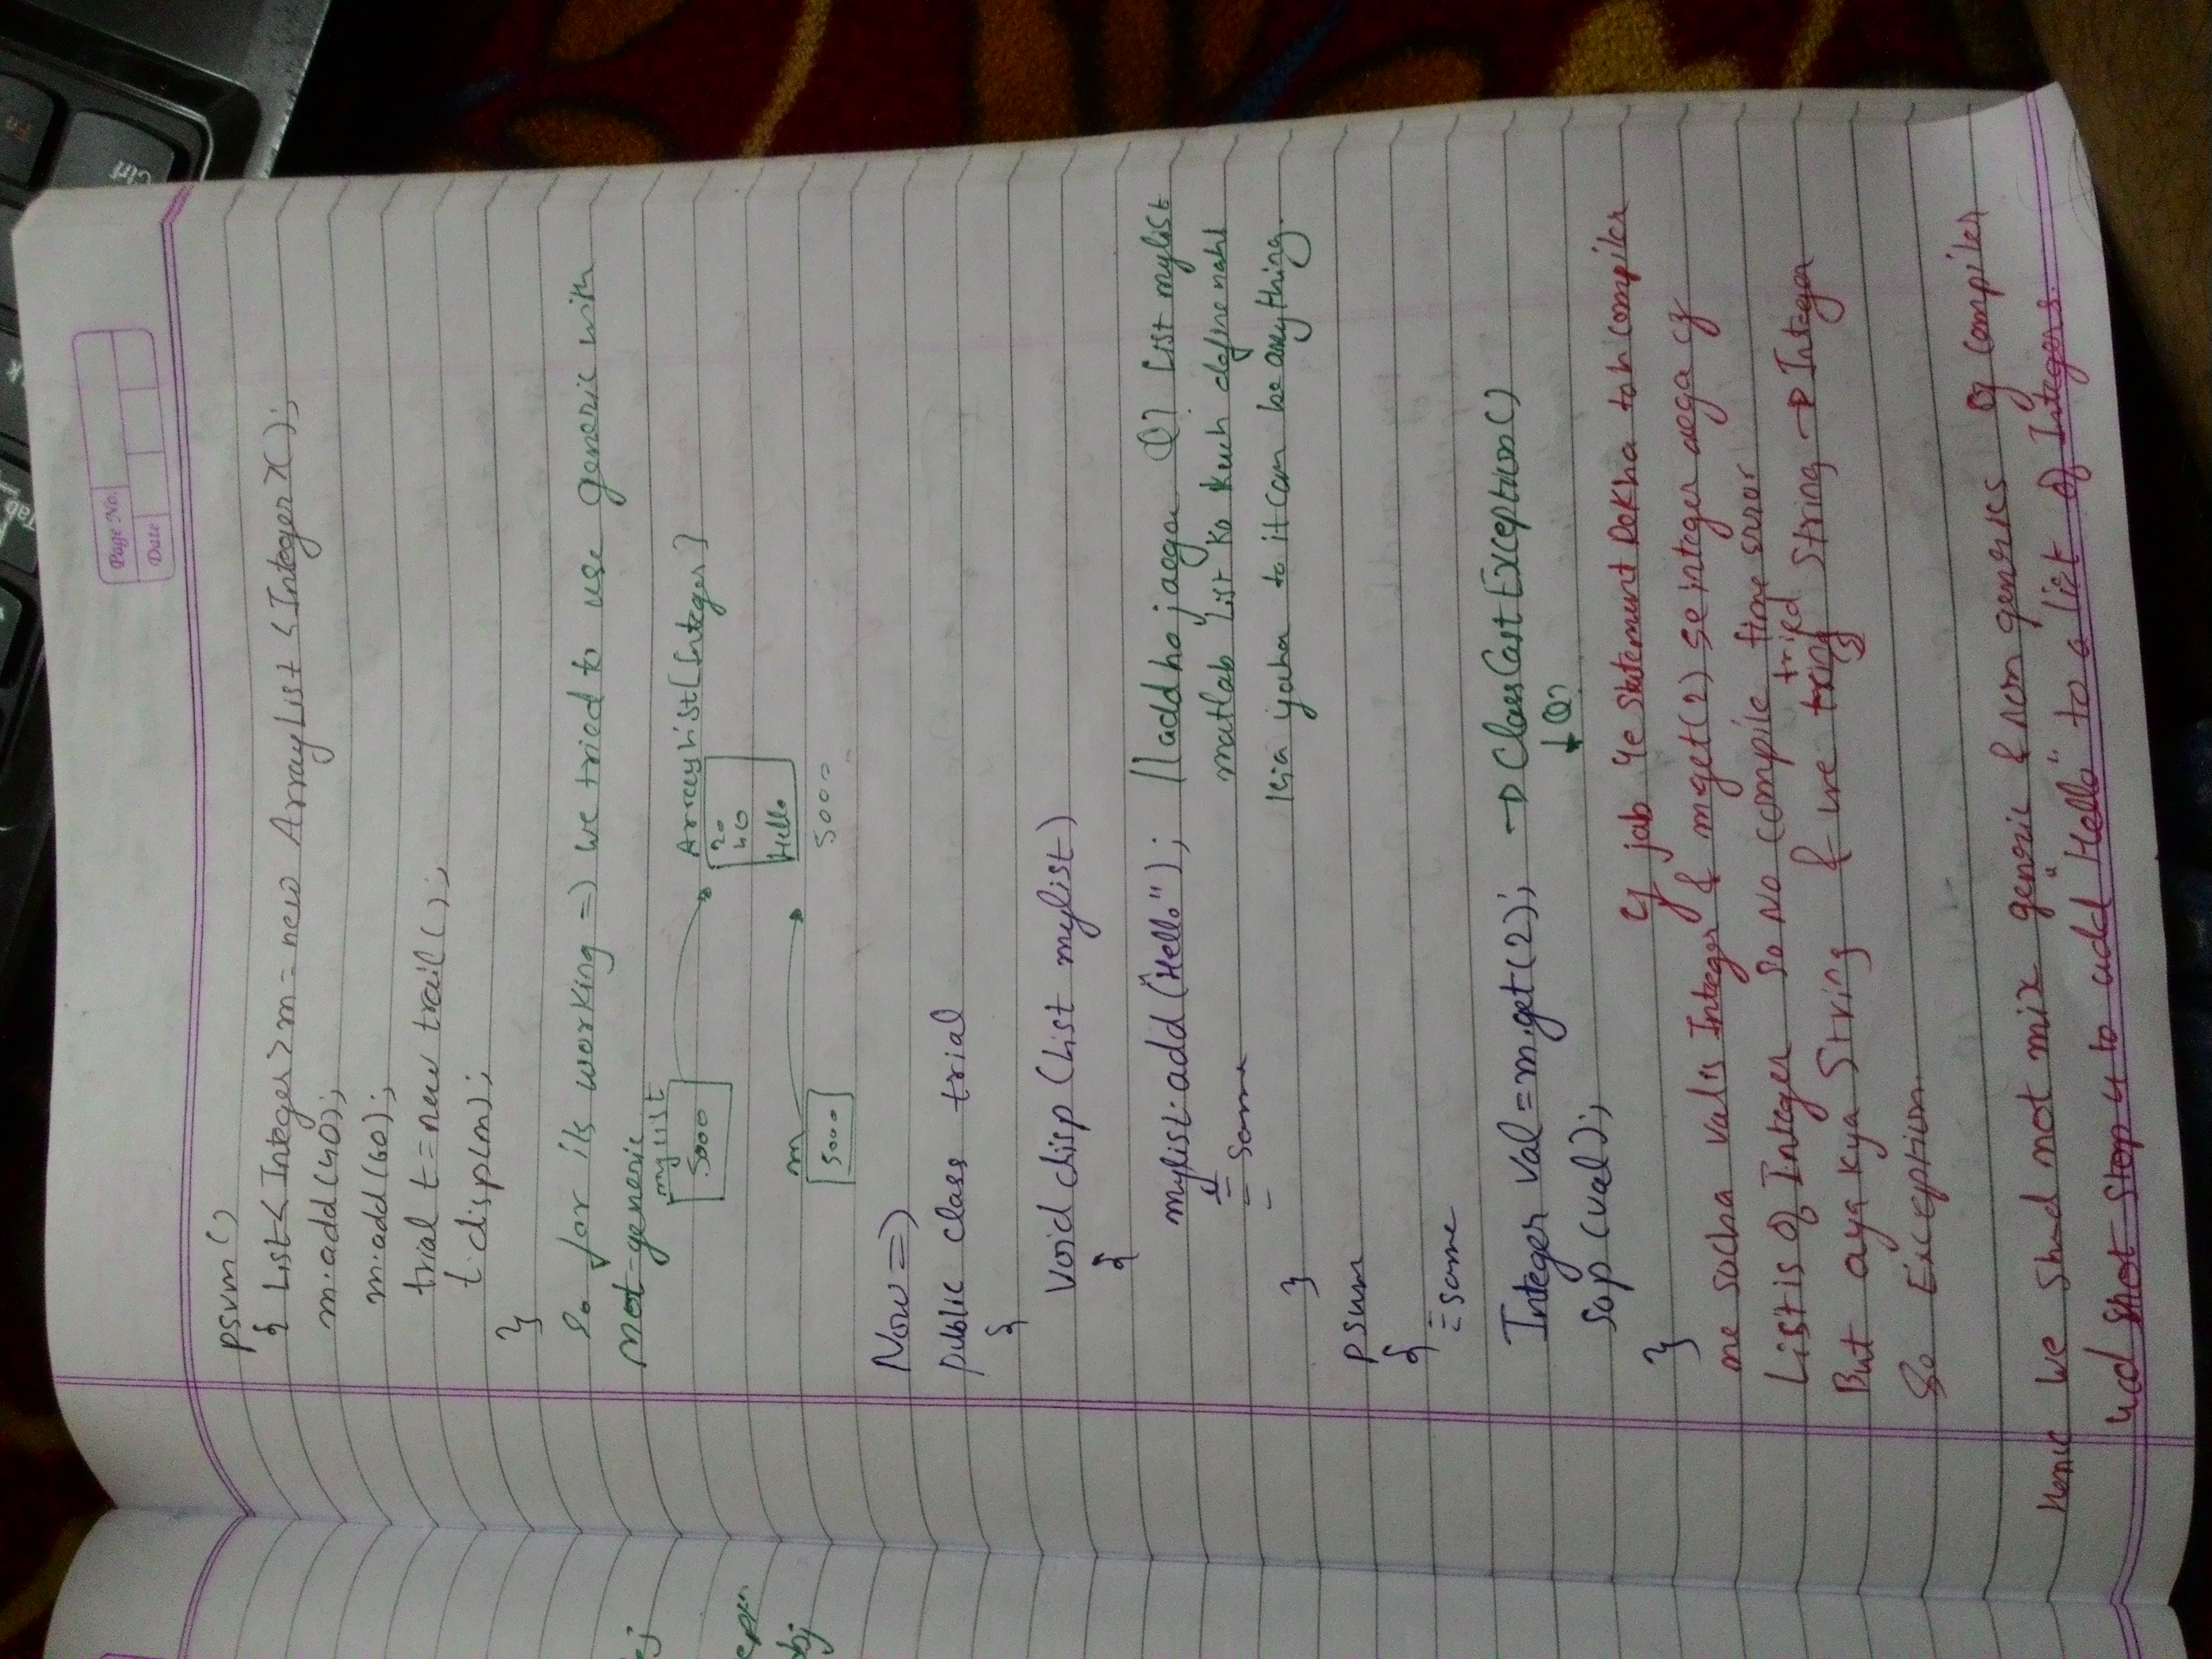 Tab
k
Fn
Ctrl
Page No.
Date
psvm()
{ List<Integer>m = new ArrayList<Integer>();
m.add(40);
m.add(60);
trial t = new trail();
t.disp(m);
}
So far its working => we tried to use generic with
not-generic
mylist
5000
ArrayList[Integer]
20
40
Hello
m
5000
5000
ej
obj
Now =>
public class trial
{
void disp (List mylist)
{
mylist.add("Hello"); // add ho jaega Q? List mylist
= same matlab List ko kuch define nahi
kia yaha to it can be anything.
}
psvm
{
= same
Integer val = m.get(2); → ClassCastException()
↓ Q?
sop(val);
cz jab ye statement Dekha toh compiler
}
ne socha val is Integer & m.get(2) se integer aega cz
List is of Integer so No compile time error
But aya kya String & we tried String → Integer
So Exception.
Hence We shud not mix generic & non generics cz compiler
stop u to add "Hello" to a list of Integers.